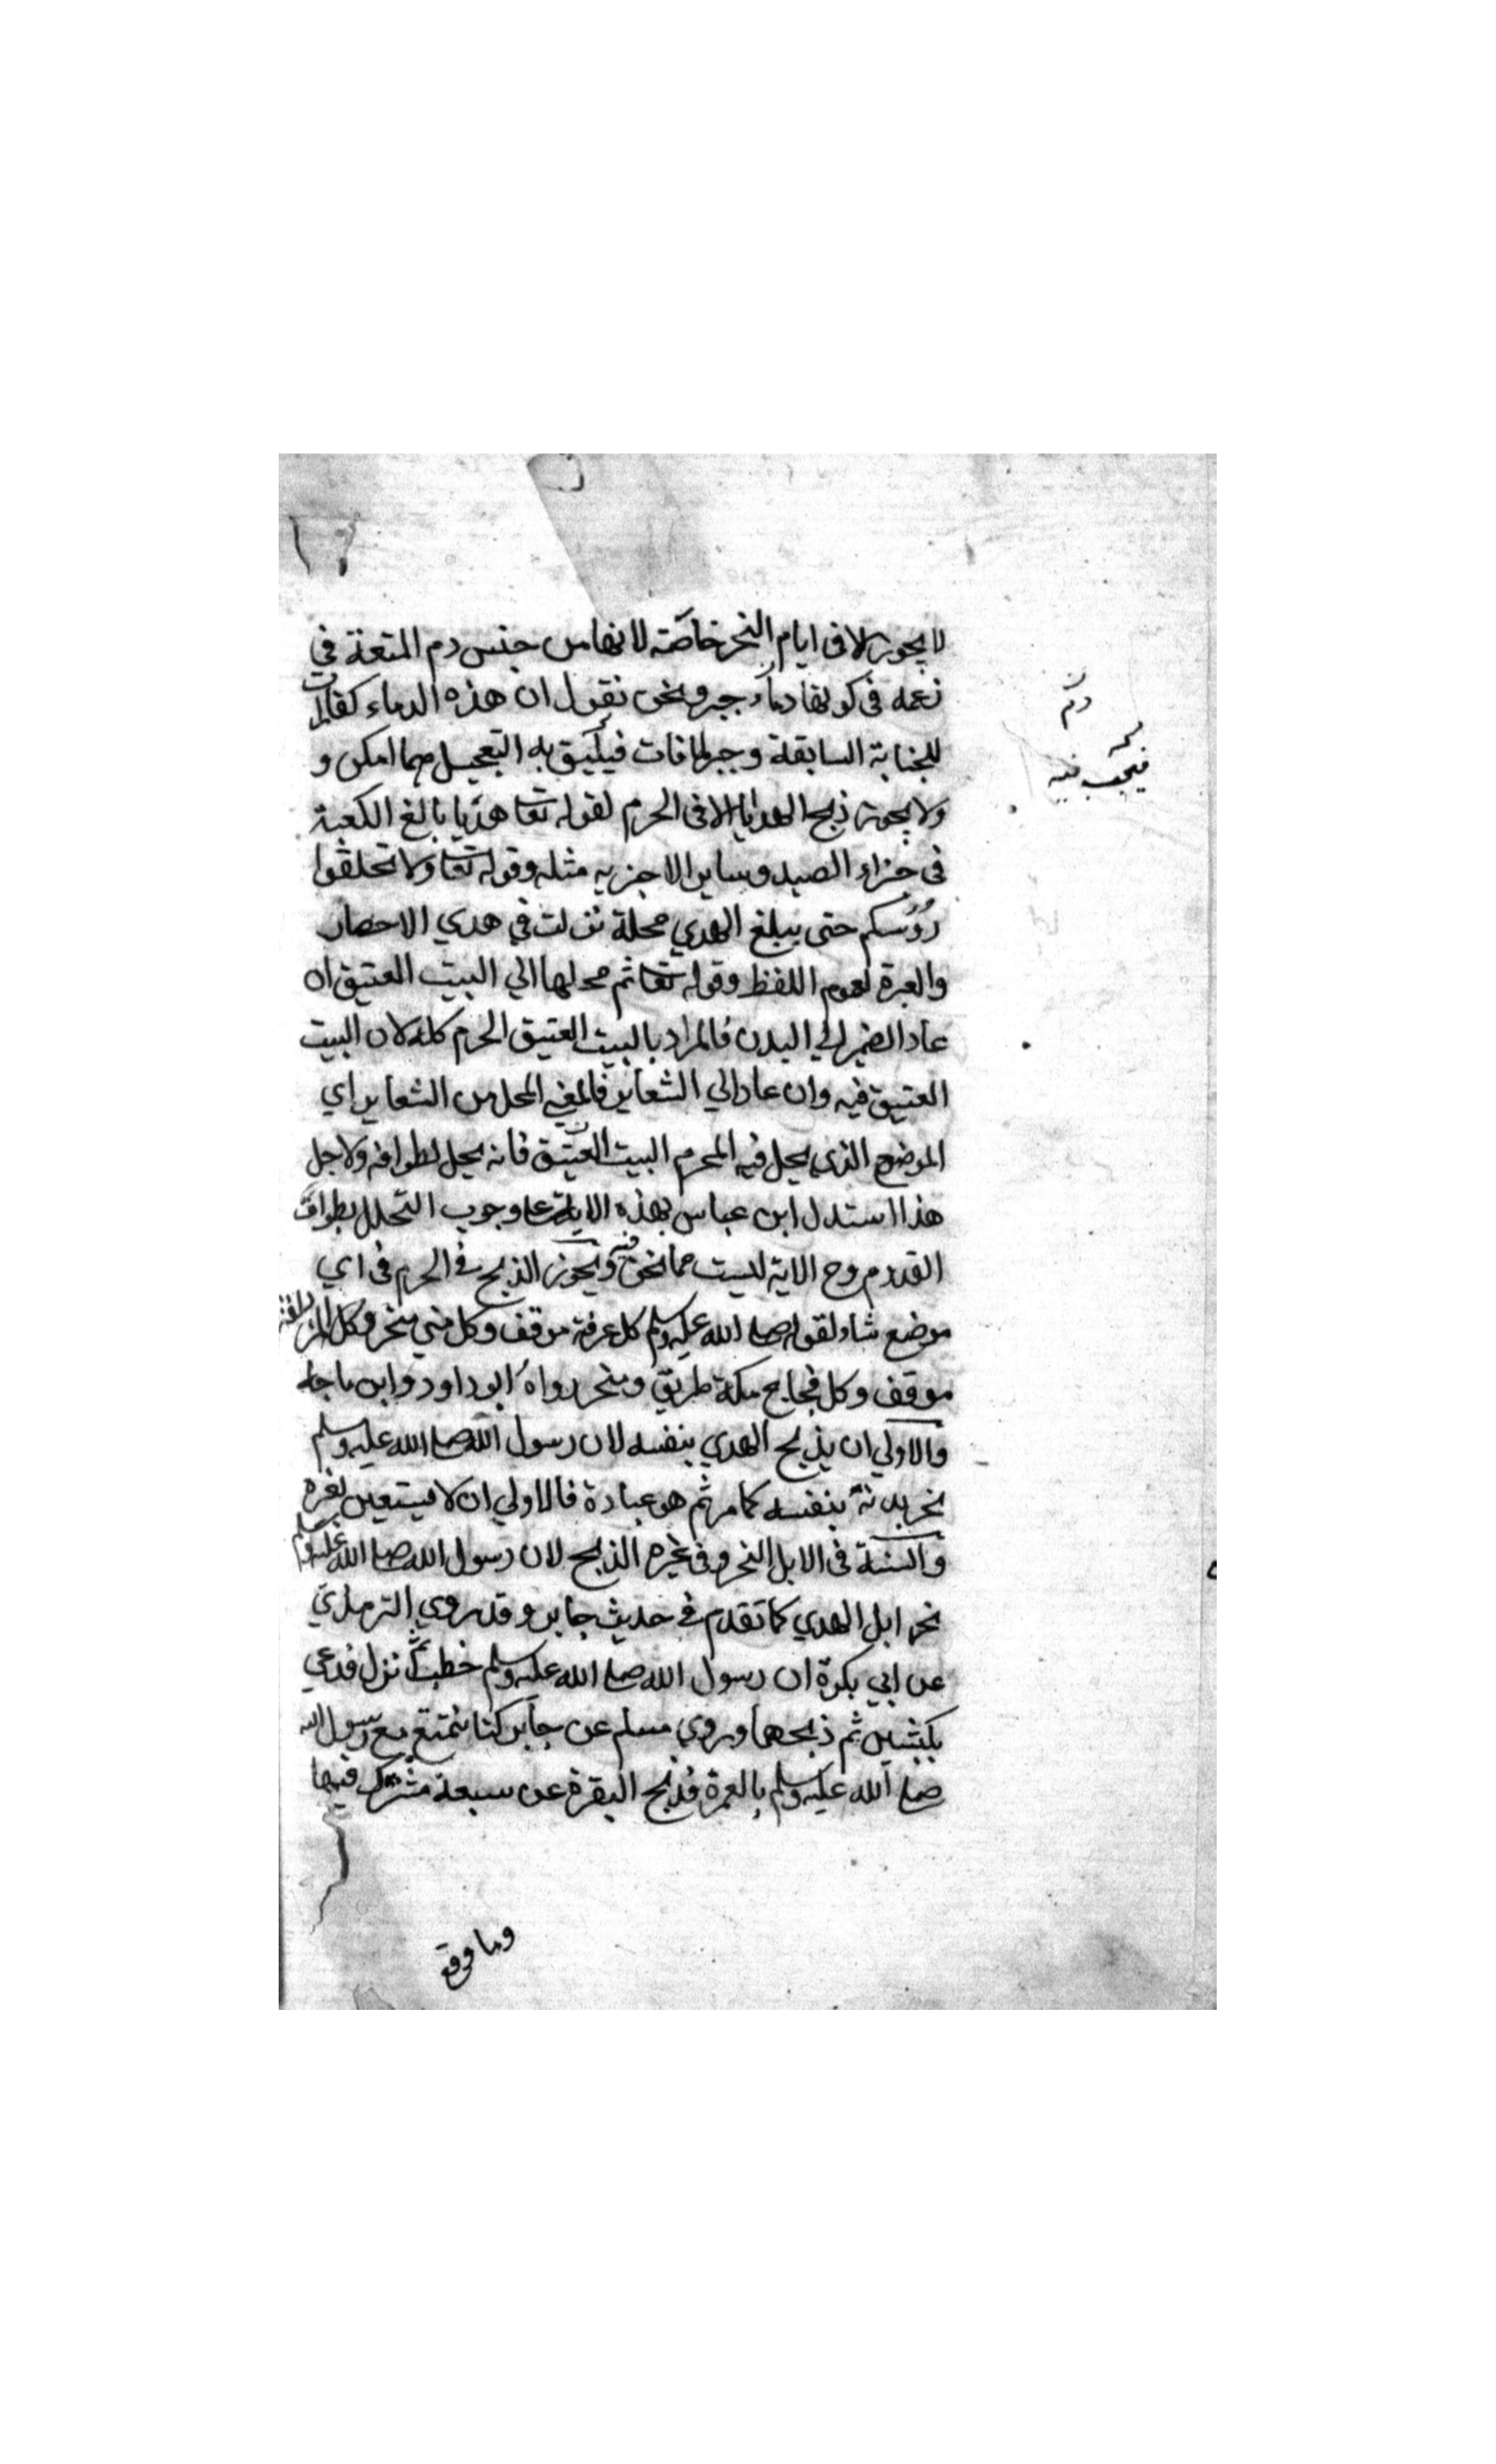 لا يجوز الا فى ايام النحر خاصة لانها من جنس دم المتعة في
زعمه فى كونها دماء جبر ونحن نقول ان هذه الدماء كفارات
للجناية السابقة وجبر لما فات فيليق به التعجيل مهما امكن و
ولا يجوز ذبح الهدايا الا فى الحرم لقوله تعا هديا بالغ الكعبة
فى جزاء الصيد وساير الاجزيه مثله وقوله تعا ولا تحلقوا
رؤسكم حتى يبلغ الهدي محلة نزلت في هدي الاحصار
والعبرة لعموم اللفظ وقوله تعا ثم محلها الي البيت العتيق ان
عاد الضمير الي البدن فالمراد بالبيت العتيق الحرم كله لان البيت
العتيق فيه وان عاد الي الشعاير فالمعني المحل من الشعاير اي
الموضع الذي يحل فيه المحرم البيت العتيق فانه يحل بطوافه ولاجل
هذا استدل ابن عباس بهذه الاية على وجوب التحلل بطواف
القدوم وح الاية ليست مما نحن فيه ويجوز الذبح في الحرم فى اي
موضع شاء لقوله صلى الله عليه وسلم كل عرفة موقف وكل منى منحر وكل المزدلفة
موقف وكل فجاج مكة طريق ومنحر رواه ابو داود وابن ماجه
والاولي ان يذبح الهدي بنفسه لان رسول الله صلى الله عليه وسلم
نحر بدنة بنفسه كما مر ثم هو عبادة فالاولي ان لا يستعين بغيره
والسنة فى الابل النحر وفى غيره الذبح لان رسول الله صلى الله عليه وسلم
نحر ابل الهدي كما تقدم في حديث جابر وقد روي الترمذي
عن ابي بكرة ان رسول الله صلى الله عليه وسلم خطب ثم نزل فدعي
بكبشين ثم ذبحهما وروي مسلم عن جابر كنا نتمتع مع رسول الله
صلى الله عليه وسلم بالعمرة فذبح البقرة عن سبعة مشترك فيها
وما وقع
دم
فيجب فيه